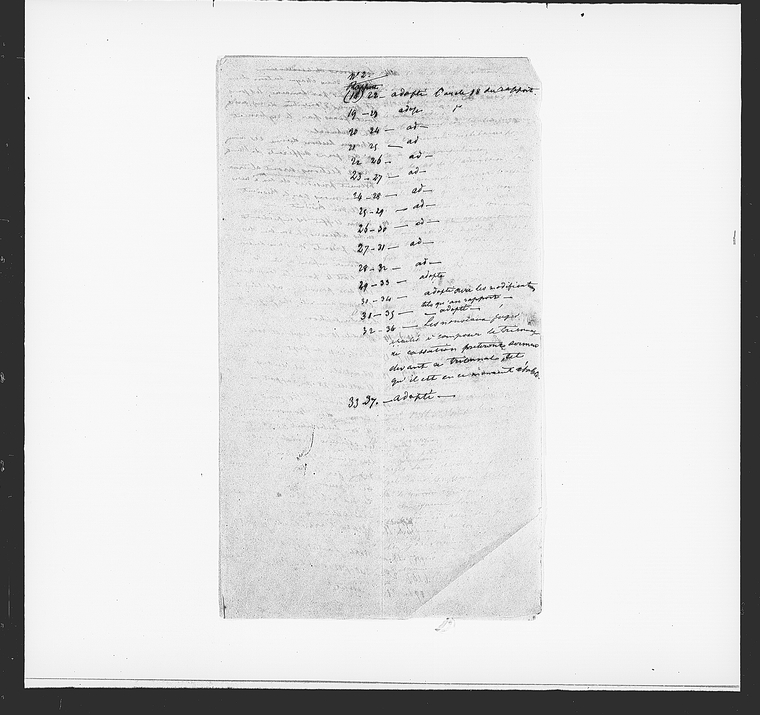 N° 2.
Rapport
(18) 22 – adopté l'article 18 du rapport.
19 – 23 adopt
20 24 — ad —
21 25 — ad
22 26 — ad —
23 – 27 — ad —
24 – 28 — ad —
25 – 29 — ad —
26 – 30 — ad —
27 – 31 — ad —
28 – 32 — ad —
29 – 33 — adopté
30 – 34 — adopté avec les modifications
tels qu'au rapport —
31 – 35 — adopté —
32 – 36 — Les nouveaux juges
à composer le tribunal
de cassation preteront serment
devant ce tribunal, tel
qu'il est en ce moment
33 37. — adopté —